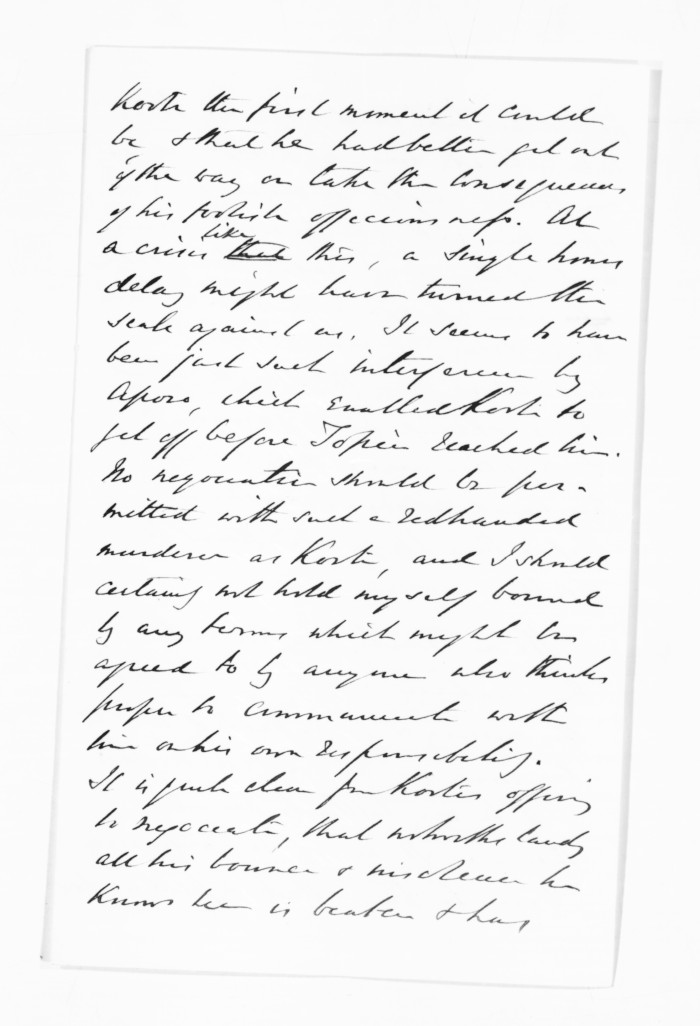 Kooti the first moment it could
be & that he had better get out
of the way or take the consequences
of his foolish officiousness. At
a crisis like this, a single hours
delay might have turned the
scale against us. It seems to have
been just such interference by
Aporo, which enabled Kooti to
get off before Topia reached him.
No negociation should be per-
mitted with such a redhanded
murderer as Kooti, and I should
certainly not hold myself bound
by any terms which might be
agreed to by anyone who thinks
proper to communicate with
him on his own responsibility.
It is quite clear from Kooti's offering
to negociate, that notwithstandg
all his bounce & insolence he
Knows he is beaten & has